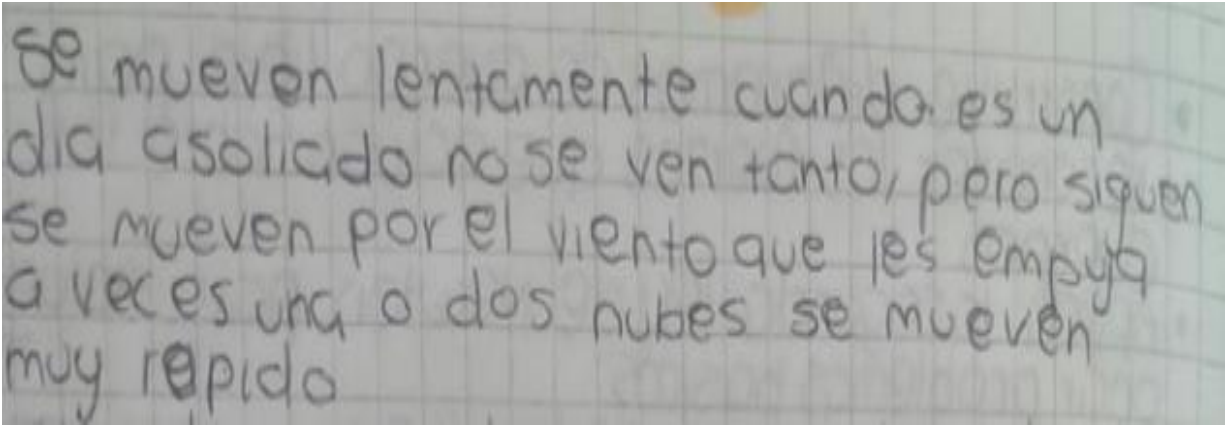 se mueven lentamente cuando. es un
dia asoliado no se ven tanto, pero siguen
se mueven por el viento que les empuya
a veces una o dos nubes se mueven
muy rapido